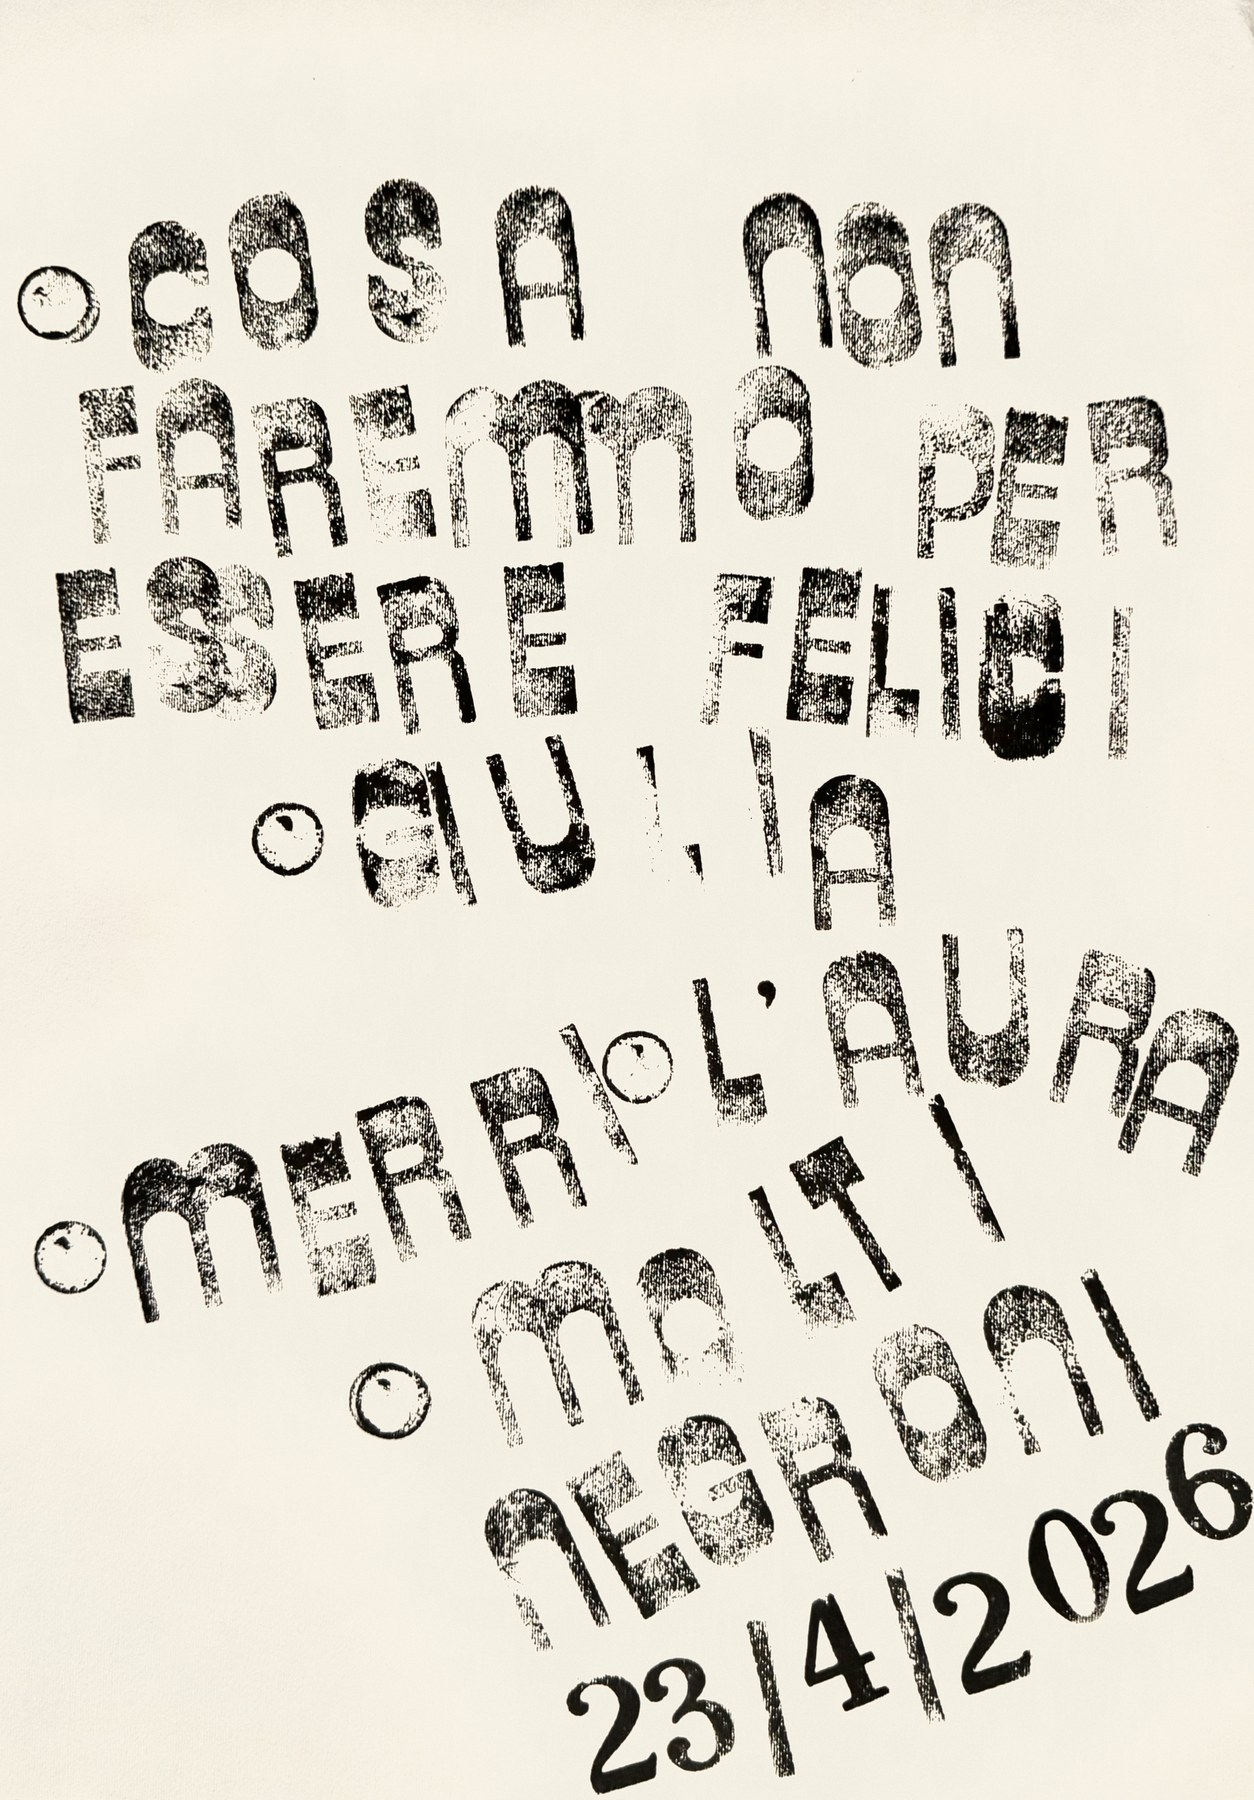 • COSA NON
FAREMMO PER
ESSERE FELICI
• GIULIA
• MERRI • L'AURA
• MOLTI
NEGRONI
23/4/2026